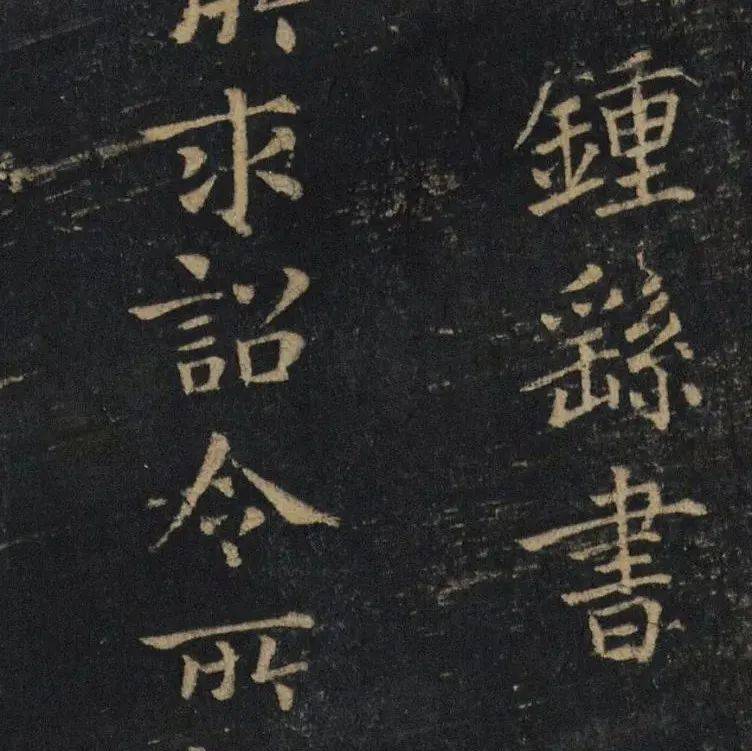 鍾繇書
所求詔令所